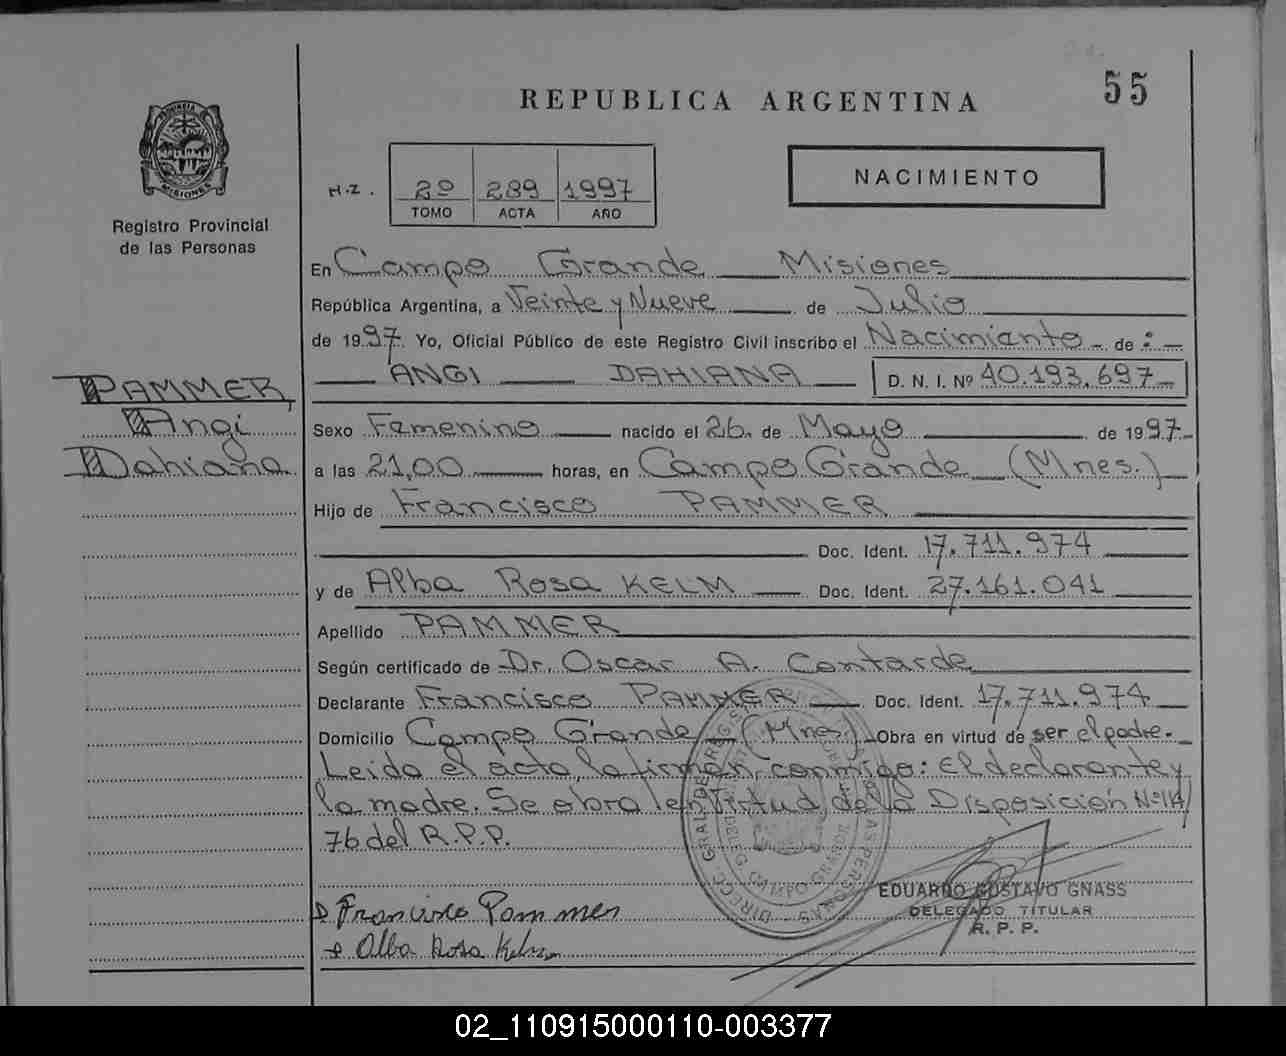 55
REPUBLICA ARGENTINA
MISIONES
Registro Provincial
de las Personas
H.Z. 2º 289 1997
TOMO ACTA AÑO
NACIMIENTO
En Campo Grande Misiones
República Argentina, a Veinte y Nueve de Julio
de 1997. Yo, Oficial Público de este Registro Civil inscribo el Nacimiento de :
ANGI DAHIANA D. N. I. Nº 40.193.697
PAMMER,
Angi
Dahiana
Sexo Femenino nacido el 26 de Mayo de 1997
a las 21,00 horas, en Campo Grande (Mnes.)
Hijo de Francisco PAMMER
Doc. Ident. 17.711.974
y de Alba Rosa KELM Doc. Ident. 27.161.041
Apellido PAMMER
Según certificado de Dr. Oscar A. Contarde
Declarante Francisco PAMMER Doc. Ident. 17.711.974
Domicilio Campo Grande (Mnes.) Obra en virtud de ser el padre.
Leida el acta, la firman conmigo: El declarante y
la madre. Se obra en Virtud de la Disposición Nº 114/
76 del R.P.P.
EDUARDO GUSTAVO GNASS
DELEGADO TITULAR
R. P. P.
Francisco Pammer
Alba Rosa Kelm
02_110915000110-003377